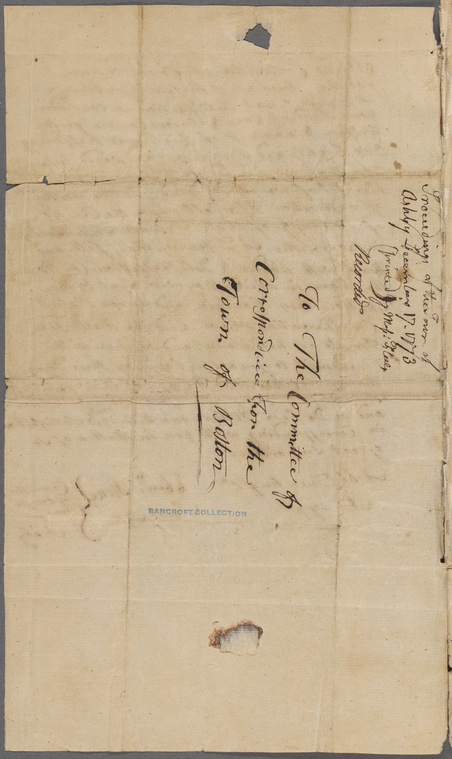 Proceedings of the Town of
Ashby December 17. 1773
by
Recorded
To The Committee of
Correspondence for the
Town of Boston
BANCROFT COLLECTION